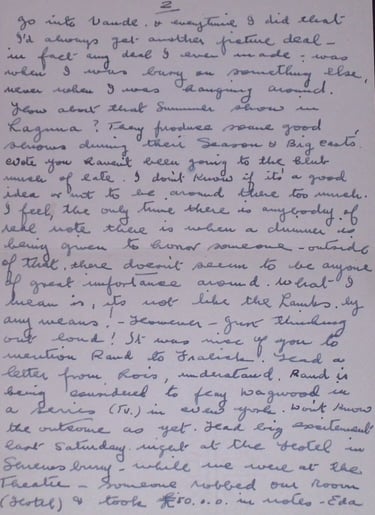 2
go into Vaude. & everytime I did that
I'd always get another picture deal –
in fact any deal I ever made was
when I was busy on something else,
never when I was hanging around.
How about that Summer show in
Laguna? They produce some good
shows during their Season & Big casts.
note you haven't been going to the club
much of late. I don't know if it's a good
idea or not to be around there too much.
I feel, the only time there is anybody of
real note there is when a dinner is
being given to honor someone – outside
of that, there doesn't seem to be anyone
of great importance around. What I
mean is, it's not like the Lambs. by
any means! – However – Just thinking
out loud! It was nice of you to
mention Rand to Fralick. Had a
letter from Rois, understand, Rand is
being considered to play Dagwood in
a Series (TV.) in New York. Don't Know
the outcome as yet. Had big excitement
last Saturday night at the Hotel in
Shrewsbury – while we were at the
Theatre – Someone robbed our Room
(Hotel) & took £50.0.0 in notes – Eda